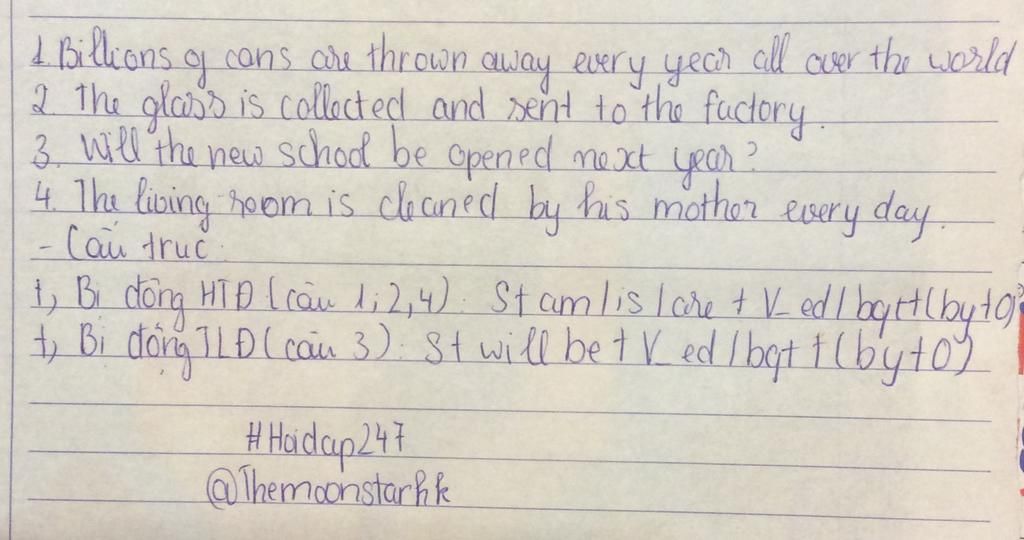 1. Billions of cans are thrown away every year all over the world
2. The glass is collected and sent to the factory.
3. Will the new school be opened next year?
4. The living room is cleaned by his mother every day.
- Cấu trúc:
+, Bị động HTĐ (câu 1, 2, 4): S + am / is / are + V_ed / bqtt (by + O)
+, Bị động TLĐ (câu 3): S + will be + V_ed / bqtt + (by + O)
#Hoidap247
@Themoonstarhk